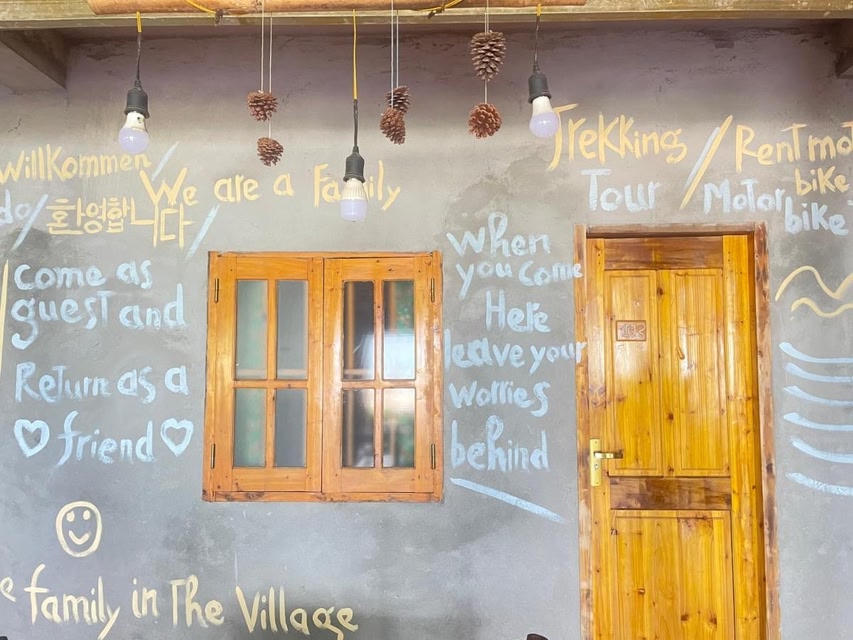 Willkommen
We are a Family
do/ 화영합니다 /
come as
guest and
Return as a
friend
e family in The Village
When
you come
Here
leave your
worries
behind
Trekking / Rent mot
bike
Tour / Motor
bike